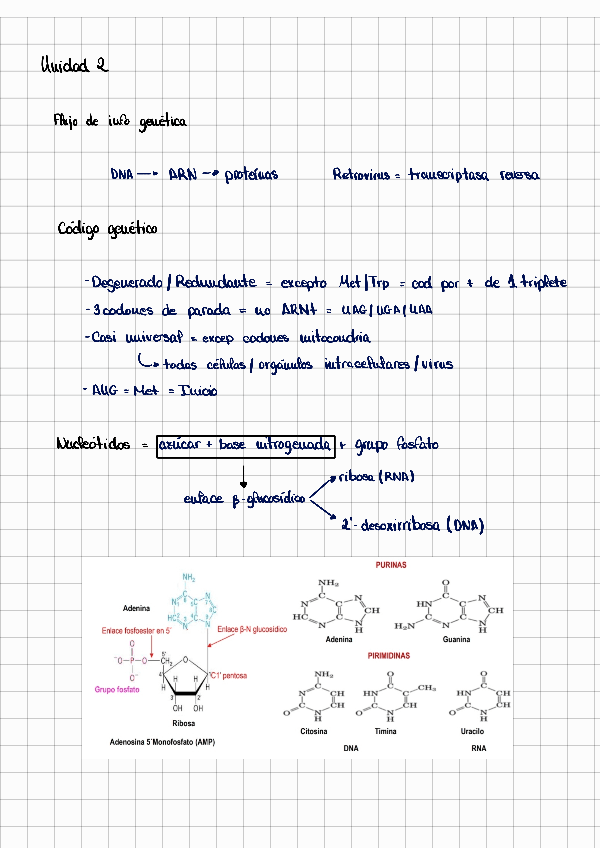 Unidad 2
Flujo de info genética
DNA → ARN → proteínas
Retrovirus = transcriptasa reversa
Código genético
- Degenerado / Redundante = excepto Met/Trp = cod por + de 1 triplete
- 3 codones de parada = no ARNt = UAG/UGA/UAA
- Casi universal = excep codones mitocondria
↳ todas células/orgánulos intracelulares/virus
- AUG = Met = Inicio
Nucleótidos = azúcar + base nitrogenada + grupo fosfato
enlace β-glucosídico
ribosa (RNA)
2'-desoxirribosa (DNA)
NH₂
Adenina
N 6 C 5 C N 7
1 8 C
HC 2 3 N 4 C N 9
Enlace fosfoester en 5´
Enlace β-N glucosídico
O
⁻O–P–O–CH₂ O
5' C1' pentosa
O⁻ 4' H H H H
Grupo fosfato
3' 2'
OH OH
Ribosa
Adenosina 5´Monofosfato (AMP)
PURINAS
NH₂ O
N C C N CH HC N C N H
HN C C N CH H₂N C N C N H
Adenina Guanina
PIRIMIDINAS
NH₂ O O
N C CH C CH O N H
HN C C CH₃ CH O C N H
HN C CH CH O C N H
Citosina Timina Uracilo
DNA RNA